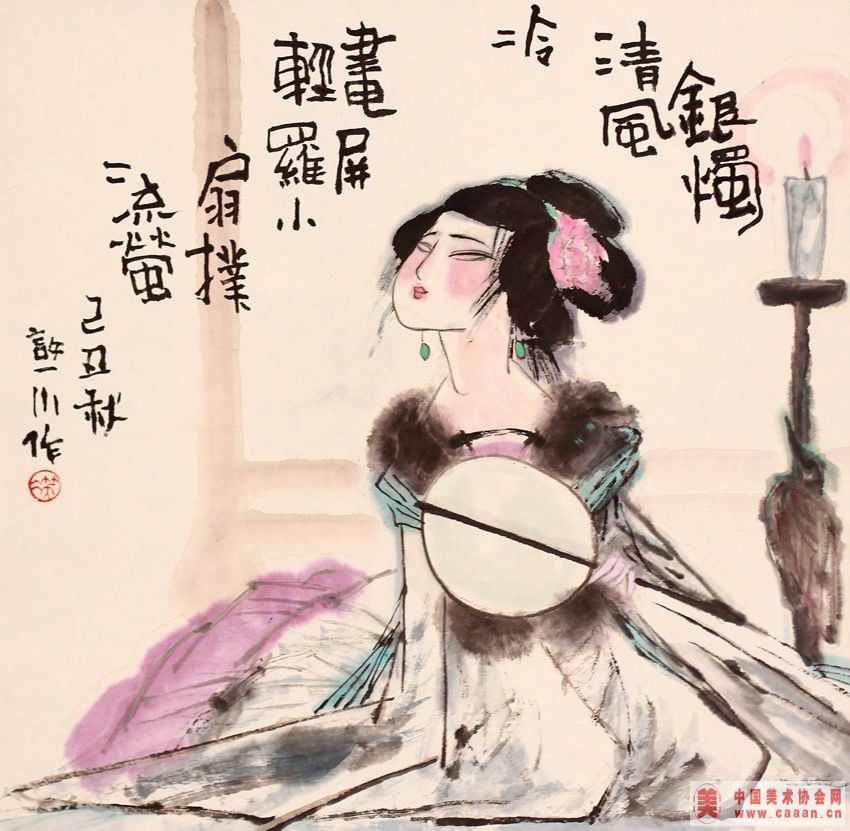 銀燭
清風
冷
畫屏
輕羅小
扇撲
流螢
己丑秋
川作
中国美术协会网
www.caaan.cn
美